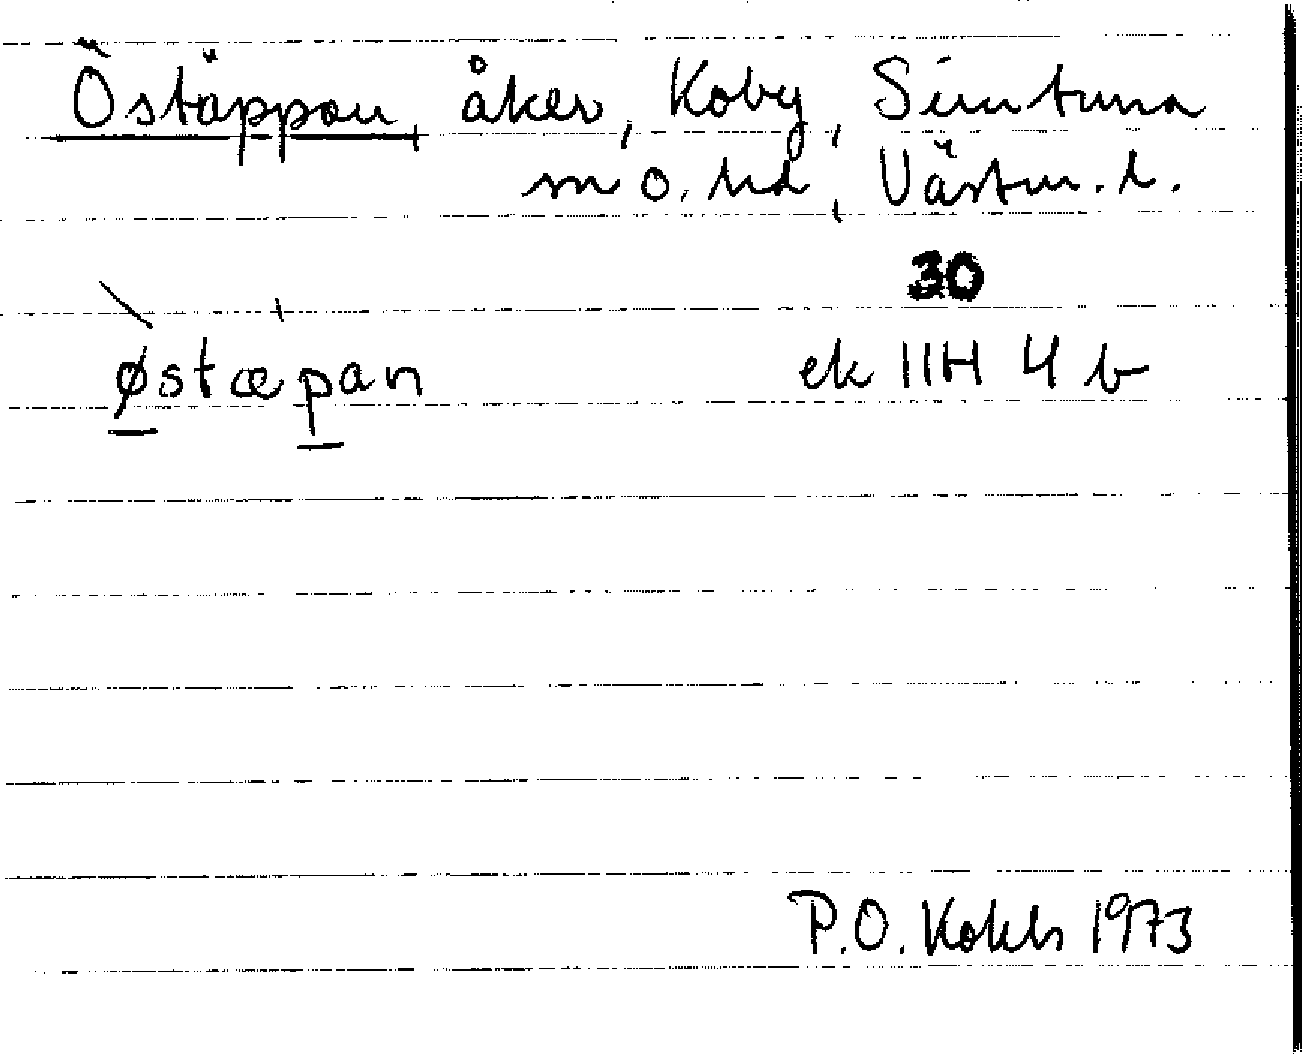 Östäppan, åker, Koby, Simtuna
s o. hd, Västm. l.
30
østæpan ek 11H 4 b
P.O. 1973